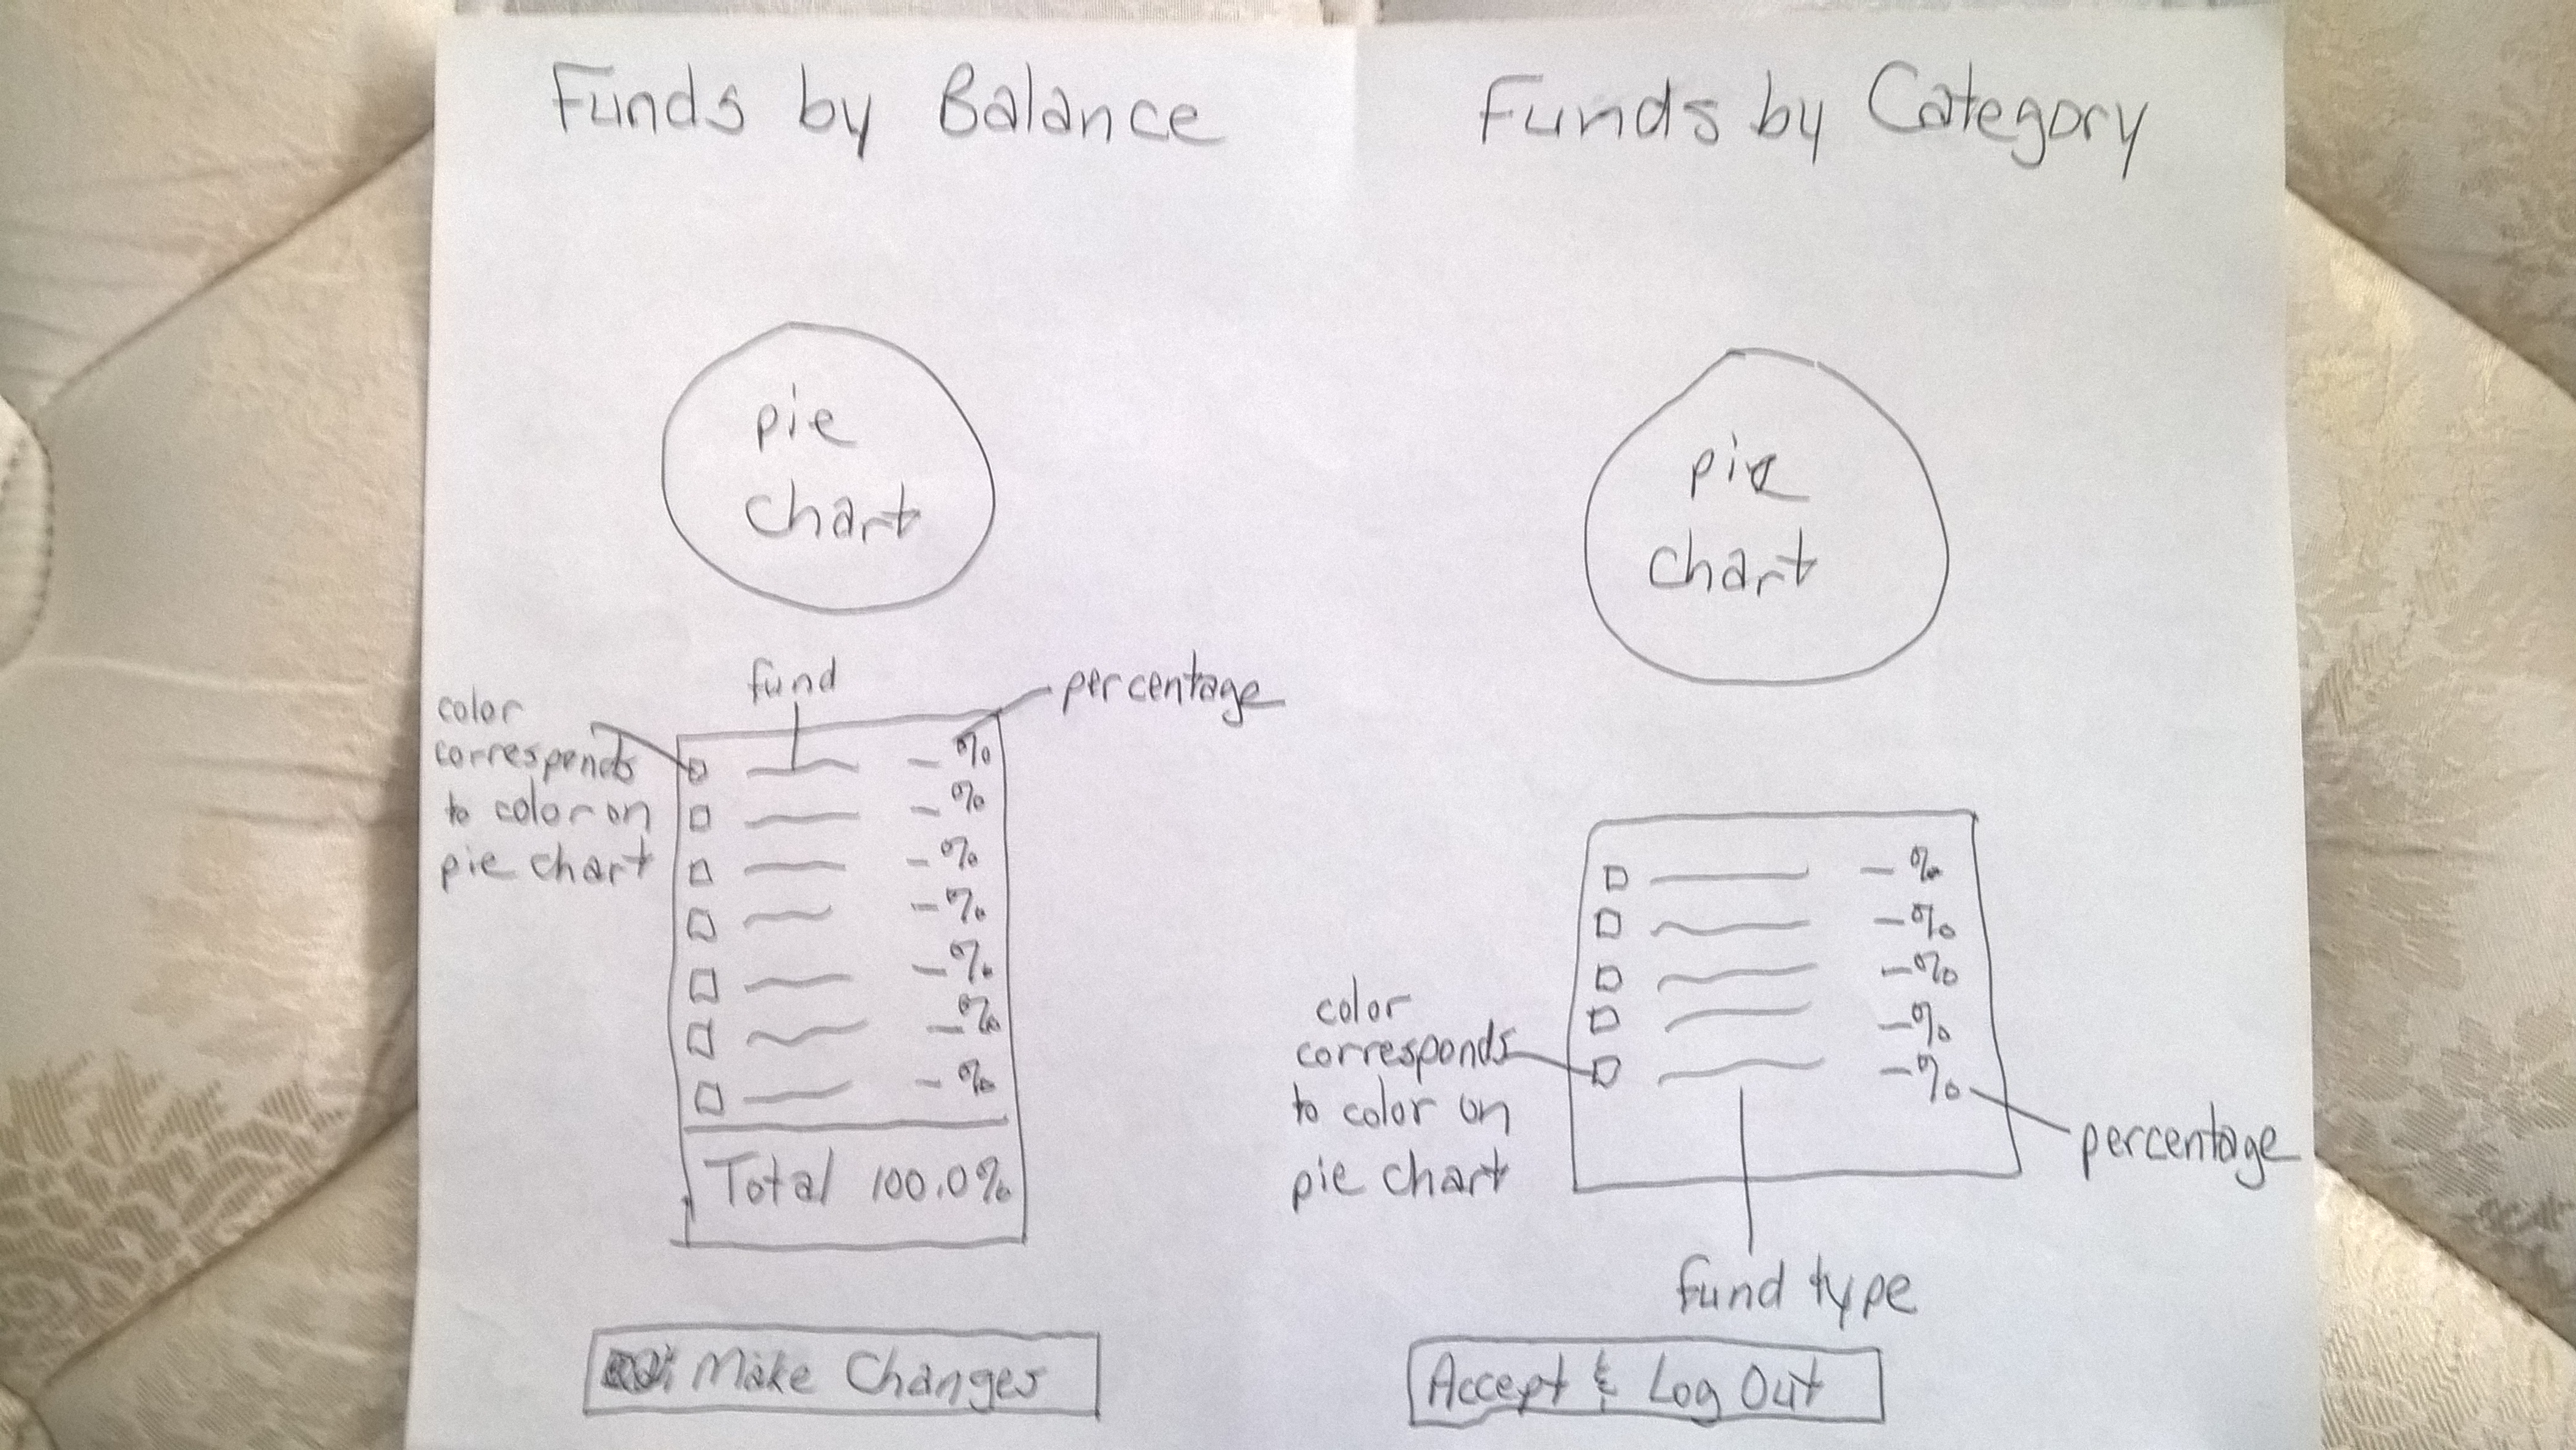 Funds by Balance
pie
chart
fund
percentage
color
corresponds
to color on
pie chart
- %
- %
- %
- %
- %
- %
- %
Total 100.0%
Make Changes
Funds by Category
pie
chart
- %
- %
- %
- %
- %
color
corresponds
to color on
pie chart
percentage
fund type
Accept & Log Out